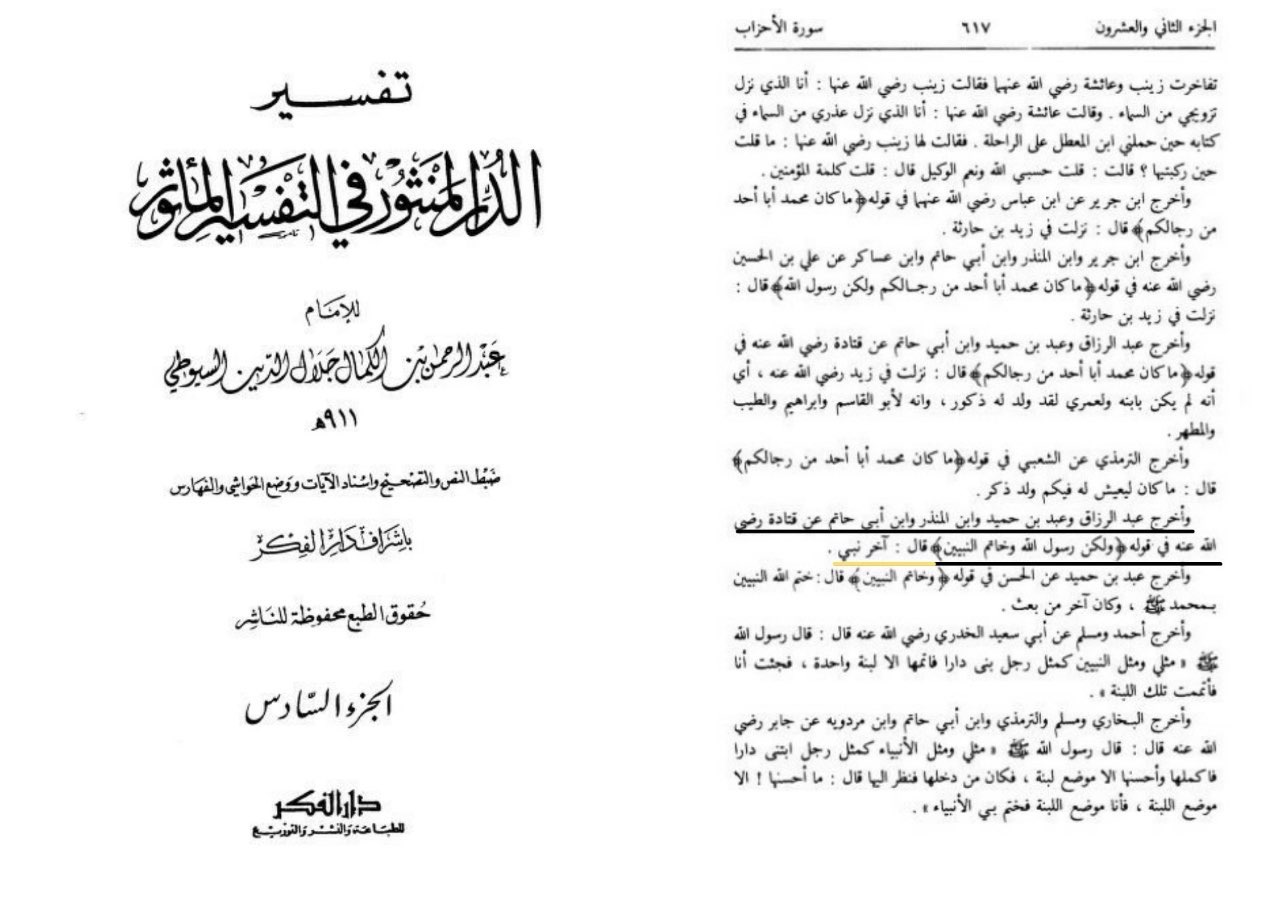 تفسير
الدر المنثور في التفسير المأثور
للإمام
عبد الرحمن بن الكمال جلال الدين السيوطي
٩١١ هـ
ضبط النص والتصحيح واسناد الآيات ووضع الحواشي والفهارس
باشراف دار الفكر
حقوق الطبع محفوظة للناشر
الجزء السادس
دار الفكر
للطباعة والنشر والتوزيع
الجزء الثاني والعشرون ٦١٧ سورة الأحزاب
تفاخرت زينب وعائشة رضي الله عنهما فقالت زينب رضي الله عنها : أنا الذي نزل
تزويجي من السماء . وقالت عائشة رضي الله عنها : أنا الذي نزل عذري من السماء في
كتابه حين حملني ابن المعطل على الراحلة . فقالت لها زينب رضي الله عنها : ما قلت
حين ركبتيها ؟ قالت : قلت حسبي الله ونعم الوكيل قال : قلت كلمة المؤمنين .
وأخرج ابن جرير عن ابن عباس رضي الله عنهما في قوله ﴿ما كان محمد أبا أحد
من رجالكم﴾ قال : نزلت في زيد بن حارثة .
وأخرج ابن جرير وابن المنذر وابن أبي حاتم وابن عساكر عن علي بن الحسين
رضي الله عنه في قوله ﴿ما كان محمد أبا أحد من رجالكم ولكن رسول الله﴾ قال :
نزلت في زيد بن حارثة .
وأخرج عبد الرزاق وعبد بن حميد وابن أبي حاتم عن قتادة رضي الله عنه في
قوله ﴿ما كان محمد أبا أحد من رجالكم﴾ قال : نزلت في زيد رضي الله عنه ، أي
أنه لم يكن بابنه ولعمري لقد ولد له ذكور ، وانه لأبو القاسم وابراهيم والطيب
والمطهر .
وأخرج الترمذي عن الشعبي في قوله ﴿ما كان محمد أبا أحد من رجالكم﴾
قال : ما كان ليعيش له فيكم ولد ذكر .
وأخرج عبد الرزاق وعبد بن حميد وابن المنذر وابن أبي حاتم عن قتادة رضي
الله عنه في قوله ﴿ولكن رسول الله وخاتم النبيين﴾ قال : آخر نبي .
وأخرج عبد بن حميد عن الحسن في قوله ﴿وخاتم النبيين﴾ قال : ختم الله النبيين
بمحمد ﷺ ، وكان آخر من بعث .
وأخرج أحمد ومسلم عن أبي سعيد الخدري رضي الله عنه قال : قال رسول الله
ﷺ « مثلي ومثل النبيين كمثل رجل بنى دارا فاتمها الا لبنة واحدة ، فجئت أنا
فأتممت تلك اللبنة » .
وأخرج البخاري ومسلم والترمذي وابن أبي حاتم وابن مردويه عن جابر رضي
الله عنه قال : قال رسول الله ﷺ « مثلي ومثل الأنبياء كمثل رجل ابتنى دارا
فاكملها وأحسنها الا موضع لبنة ، فكان من دخلها فنظر اليها قال : ما أحسنها ! الا
موضع اللبنة ، فأنا موضع اللبنة فختم بي الأنبياء » .